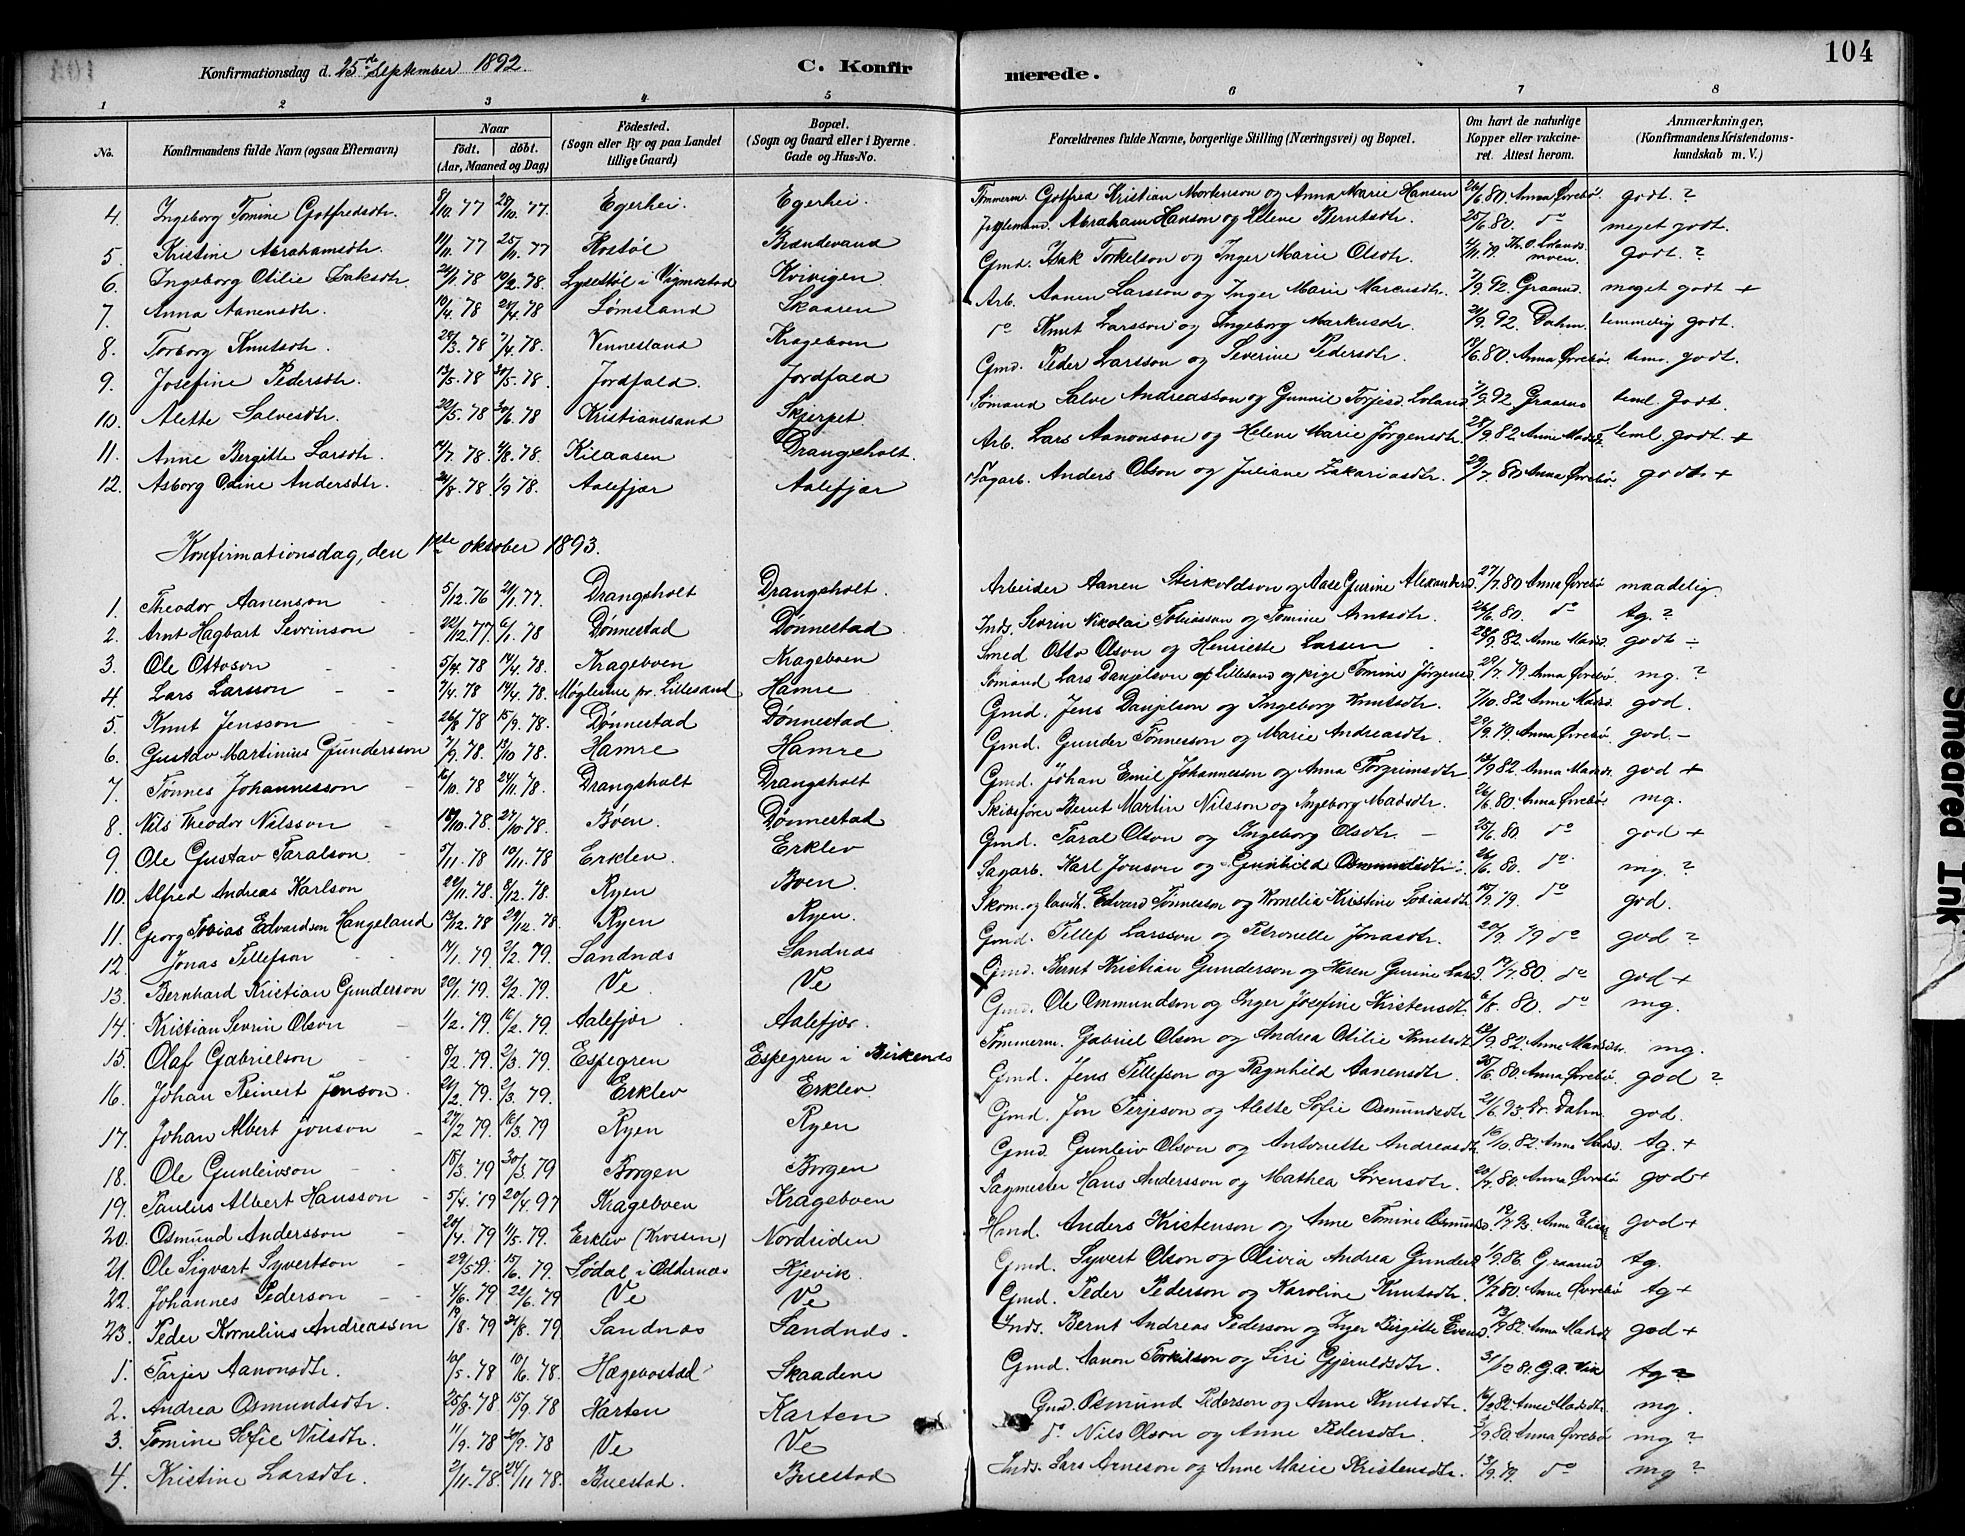 104
Konfirmationsdag d. 25de September 1892. C. Konfirmerede.
1 2 3 4 5 6 7 8
No. Konfirmandens fulde Navn (ogsaa Efternavn) Naar født. døbt. (Aar, Maaned og Dag) Fødested. (Sogn eller By og paa Landet tillige Gaard) Bopæl. (Sogn og Gaard eller i Byerne Gade og Hus-No. Forældrenes fulde Navne, borgerlige Stilling (Næringsvei) og Bopæl. Om havt de naturlige Kopper eller vakcineret. Attest herom. Anmærkninger, (Konfirmandens Kristendomskundskab m. V.)
4. Ingeborg Tomine Gotfredsdtr. 8/10. 77 28/10. 77. Egerhei. Egerhei. Tømmerm. Gotfred Kristian Mortenson og Anna Marie Hansen 26/6 80. Anna Øvrebø. godt. ?
5. Kristine Abrahamsdtr. 11/11. 77 25/11. 77 Rostøl Brændevand Abraham Hanson og Helene Berntsdtr. 25/6. 80. do meget godt.
6. Ingeborg Otilie Isaksdtr. 20/1. 78 10/2. 78. Lysestøl i Vigmostad Kvivigen Gmd. Isak Torkelson og Inger Marie Olsdtr. godt. ?
7. Anna Aanensdtr. 10/4. 78 28/4. 78 Lømsland Skaaren Arb. Aanen Larsson og Inger Marie Marcusdtr. 7/9. 92. Graarud. meget godt +
8. Torborg Knutsdtr. 20/3. 78 7/4. 78. Vennesland Krageboen do Knut Larsson og Ingeborg Markusdtr. 21/9. 92. Dahm. temmelig godt.
9. Josefine Pedersdtr. 13/5. 78 30/5. 78. Jordfald. Jordfald Gmd. Peder Larsson og Severine Pedersdtr. 19/6. 80. Anna Øvrebø. tem. godt.
10. Alette Salvesdtr. 22/5. 78 30/6. 78 Kristianssand Skjerpet Sømand Salve Andreasson og Gunnil Torjesd. Loland 7/9. 92 Graarud teml. godt.
11. Anne Bergitte Larsdtr. 14/7. 78 4/8. 78. Kilaasen Drangsholt. Arb. Lars Aanonson og Helene Marie Jørgensdtr. 28/9. 82 Anne Madsd. teml. godt +
12. Asborg Odine Andersdtr. 20/8. 78 1/9 78. Aalefjær Aalefjær Sagarb. Anders Olson og Juliane Zakariasdtr. 29/7. 80 Anna Øvrebø. godt +
Konfirmationsdag, den 1ste oktober 1893.
1. Theodor Aanenson 5/12. 76 21/1. 77. Drangsholt Drangsholt. Arbeider Aanen Sterkoldson og Aase Gurine Alexanders. 27/7. 80 Anna Øvrebø maadelig
2. Arnt Hagbart Sevrinson 22/12 77. 6/1. 78 Dønnestad Dønnestad Inds. Sevrin Nikolai Tobiasson og Tomine Arntsdtr. 26/6. 80. do tg. ?
3. Ole Ottoson 5/4. 78 14/4. 78. Krageboen Krageboen Smed Otto Olson og Henriette Larsen 28/9. 82. Anne Madsd. godt -
4. Lars Larsson 7/4. 78 14/4. 78. Møglestue pr. Lillesand Hamre Sømand Lars Danjelson af Lillesand og pige Tomine Jørgens. 29/7. 79 Anna Øvrebø. mg. ?
5. Knut Jensson 26/8 78 15/9. 78. Dønnestad Dønnestad Gmd. Jens Danjelson og Ingeborg Knutsdtr. 7/10. 82 Anne Madsd. god.
6. Gustav Martinius Gundersson 7/9. 78. 13/10 78. Hamre Hamre Gmd. Gunder Tønnesson og Marie Andreasdtr. 29/9. 79. Anna Øvrebø god. -
7. Tønnes Johannesson 16/10. 78 24/11. 78. Drangsholt Drangsholt Gmd. Johan Emil Johannesson og Anna Torgrimsdtr. 18/9 82. Anna Madsdr. god +
8. Nils Theodor Nilsson 18/10. 78. 27/10. 78. Boen. Dønnestad Skibsfører Bernt Martin Nilsson og Ingeborg Madsdtr. 26/6. 80. Anna Øvrebø. mg.
9. Ole Gustav Taralson. 5/11. 78 10/11. 78 Erklev. Erklev Gmd. Taral Olson og Ingeborg Olsdtr. - 25/6. 80 do god +
10. Alfred Andreas Karlson 22/11. 78. 8/12. 78. Ryen Boen. Sagarb. Karl Jonson og Gunhild Osmundsdtr. 26/6. 80. do. mg. ?
11. Georg Tobias Edvardson Hangeland 13/12. 78 29/12. 78. Ryen Ryen. Skom. og landh. Edvard Tønnesson og Kornelia Kristine Tobiasdtr 18/9. 79. do god.
12. Jonas Tellefson 14/1. 79. 2/2. 79. Sandnæs Sandnæs Gmd. Tellef Larsson og Petronelle Jonasdtr. 20/9 79 do god ?
13. Bernhard Kristian Gunderson 20/1. 79. 2/2. 79. Ve Ve Gmd. Bernt Kristian Gunderson og Karen Gurine Larsd. 17/7. 80. do god +
14. Kristian Sevrin Olson 1/2. 79. 16/2. 79. Aalefjær Aalefjær. Gmd. Ole Ommundson og Inger Josefine Kristensdt. 6/8. 80. do mg.
15. Olaf Gabrielson 8/2. 79. 2/3. 79. Espegren Espegren i Birkenes Tømmerm. Gabriel Olson og Andrea Otilie Knutsdtr 18/9. 82. Anne Madsdr. mg.
16. Johan Reinert Jenson. 21/2. 79. 2/3. 79. Erklev Erklev Gmd. Jens Tellefson og Ragnhild Aanensdtr. 25/6. 80. Anna Øvrebø god ?
17. Johan Albert Jonson 27/2 79. 16/3. 79 Ryen Ryen Gmd. Jon Terjeson og Alette Sofie Osmundsdtr 21/6. 93. Dr. Dahm god.
18. Ole Gunleivson 18/3. 79 30/3. 79 Borgen Borgen Gmd. Gunleiv Olson og Antonette Andreasdtr 16/10. 82. Anne Madsd. tg. +
19. Paulus Albert Hansson 5/4. 79 20/4. 97 Krageboen Krageboen Sagmester Hans Andersson og Mathea Sørensdtr. 20/7. 80. Anna Øvrebø god +
20. Osmund Andersson 20/4. 79 11/5. 79. Erklev (Krossen) Nordsiden Hmd. Anders Kristenson og Anne Tomine Osmunds. god +
21. Ole Sigvart Syvertson 29/5 79. 15/6. 79. Lødal i Oddernæs Kjevik. Gmd. Syvert Olson og Olivia Andrea Gunders. 1/9. 86. Graarud tg.
22. Johannes Pederson 4/6. 79 22/6. 79 Ve Ve Gmd. Peder Pederson og Karoline Knutsdtr 19/7 80. Anne Øvrebø tg +
23. Peder Kornelius Andreasson 19/8. 79 31/8. 79. Sandnæs Sandnæs. Inds. Bernt Andreas Pederson og Inger Birgitte Evens. 13/9 82. Anna Madsdt. god +
1. Tarjer Aanonsdtr. 10/5. 78 10/6. 78. Hægebostad Skaadene Gmd. Aanon Torkilson og Siri Gjeruldsdtr. tg ?
2. Andrea Osmundsdtr. 25/8. 78 15/9. 78 Karten Karten Gmd. Osmund Pederson og Anne Knutsdtr. Anne Madsdtr. mg.
3. Tomine Sofie Nilsdtr. 11/9. 78 29/9. 78 Ve Ve do Nils Olson og Anne Pedersdtr. 3/9. 80. Anna Øvrebø mg ?
4. Kristine Larsdtr. 2/11. 78. 24/11 78. Buestad. Buestad Inds. Lars Arneson og Anne Marie Kristensdtr. 13/9. 79. do mg ?
Smeared Ink